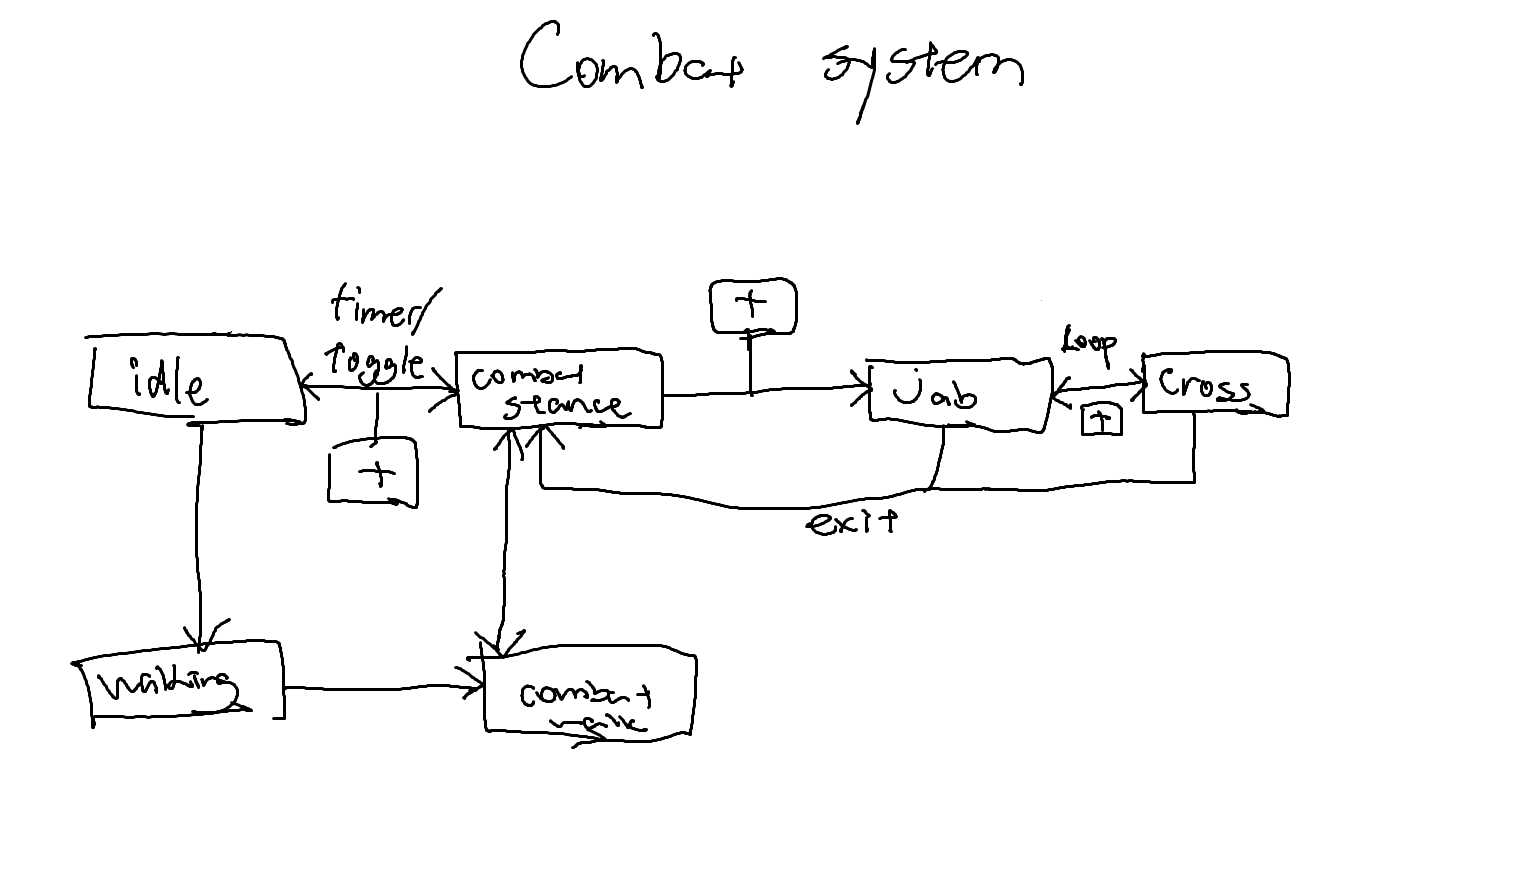 Combat system
timer/
Toggle
idle
+
combat
stance
+
jab
Loop
+
cross
exit
walking
combat
walk